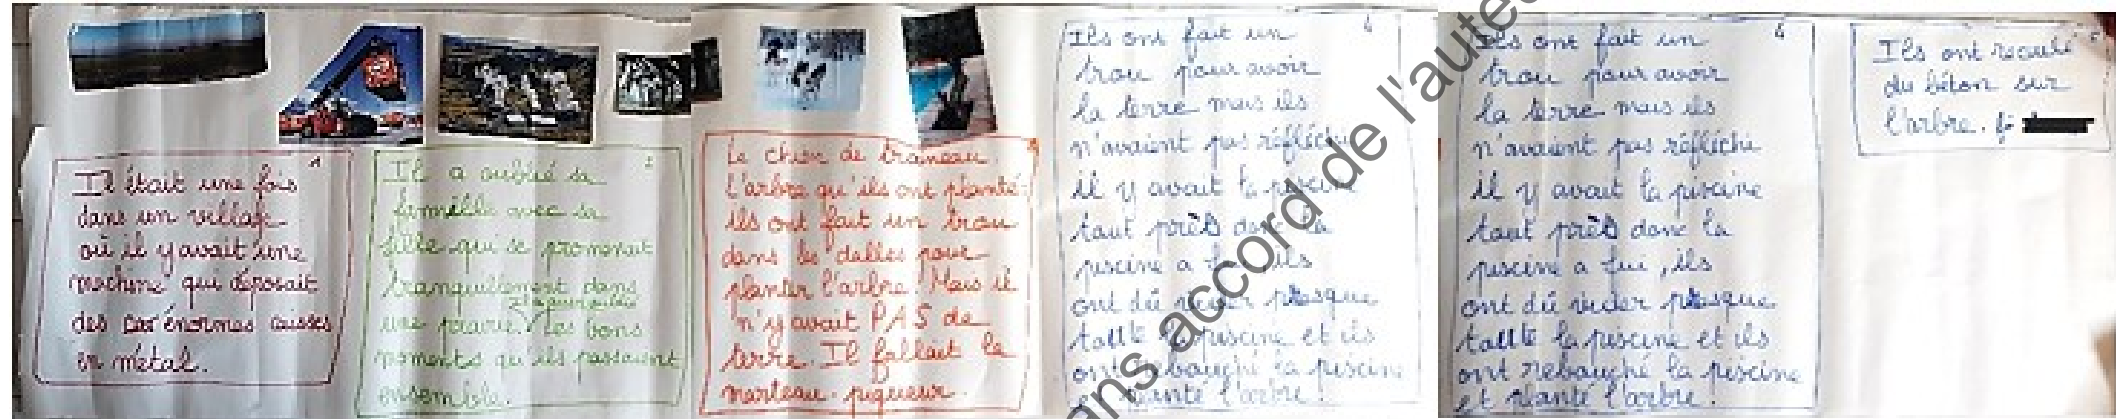 1
Il était une fois
dans un village
où il y avait une
machine qui déposait
des car énormes caisses
en métal.
2
Il a oublié sa
famille avec sa
fille qui se promenait
tranquillement dans
une prairie les bons
moments qu'ils passaient
ensemble.
Le chien de traneau.
L'arbre qu'ils ont planté:
ils ont fait un trou
dans les dalles pour
planter l'arbre! Mais il
n'y avait PAS de
terre. Il fallait le
marteau-piqueur.
Ils ont fait un
trou pour avoir
la terre mais ils
n'avaient pas réfléchi
il y avait la piscine
tout près donc la
piscine a fui, ils
ont dû vider presque
toute la piscine et ils
ont rebouché la piscine
et planté l'arbre!
Ils ont fait un
trou pour avoir
la terre mais ils
n'avaient pas réfléchi
il y avait la piscine
tout près donc la
piscine a fui, ils
ont dû vider presque
toute la piscine et ils
ont rebouché la piscine
et planté l'arbre!
Ils ont recoulé
du béton sur
l'arbre.
sans accord de l'auteur